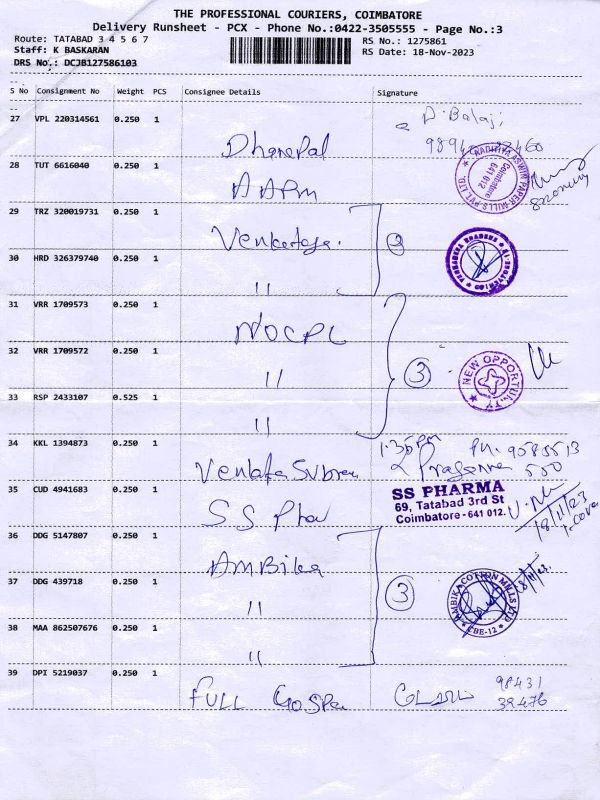 THE PROFESSIONAL COURIERS, COIMBATORE
Delivery Runsheet - PCX - Phone No.:0422-3505555 - Page No.:3
Route: TATABAD 3 4 5 6 7
RS No.: 1275861
Staff: K BASKARAN
RS Date: 18-Nov-2023
DRS No.: DCJB127586103
S No Consignment No Weight PCS Consignee Details Signature
27 VPL 220314561 0.250 1 Dhanapal
28 TUT 6616040 0.250 1 AAPM
ADITHYA ASWIN PAPER MILLS PVT. LTD. Coimbatore 641 012
29 TRZ 320019731 0.250 1 2
30 HRD 326379740 0.250 1 "
31 VRR 1709573 0.250 1 NOCPL
32 VRR 1709572 0.250 1 " 3
NEW OPPORTUNITY
33 RSP 2433107 0.525 1 "
34 KKL 1394873 0.250 1 1.35pm
SS PHARMA
69, Tatabad 3rd St
Coimbatore - 641 012.
35 CUD 4941683 0.250 1 SS Pha
18/11/23
36 DDG 5147807 0.250 1 AMBika
37 DDG 439718 0.250 1 " 3
AMBIKA COTTON MILLS LTD CBE-12
38 MAA 862507676 0.250 1 "
39 DPI 5219037 0.250 1 FULL Gospe 98431
39476